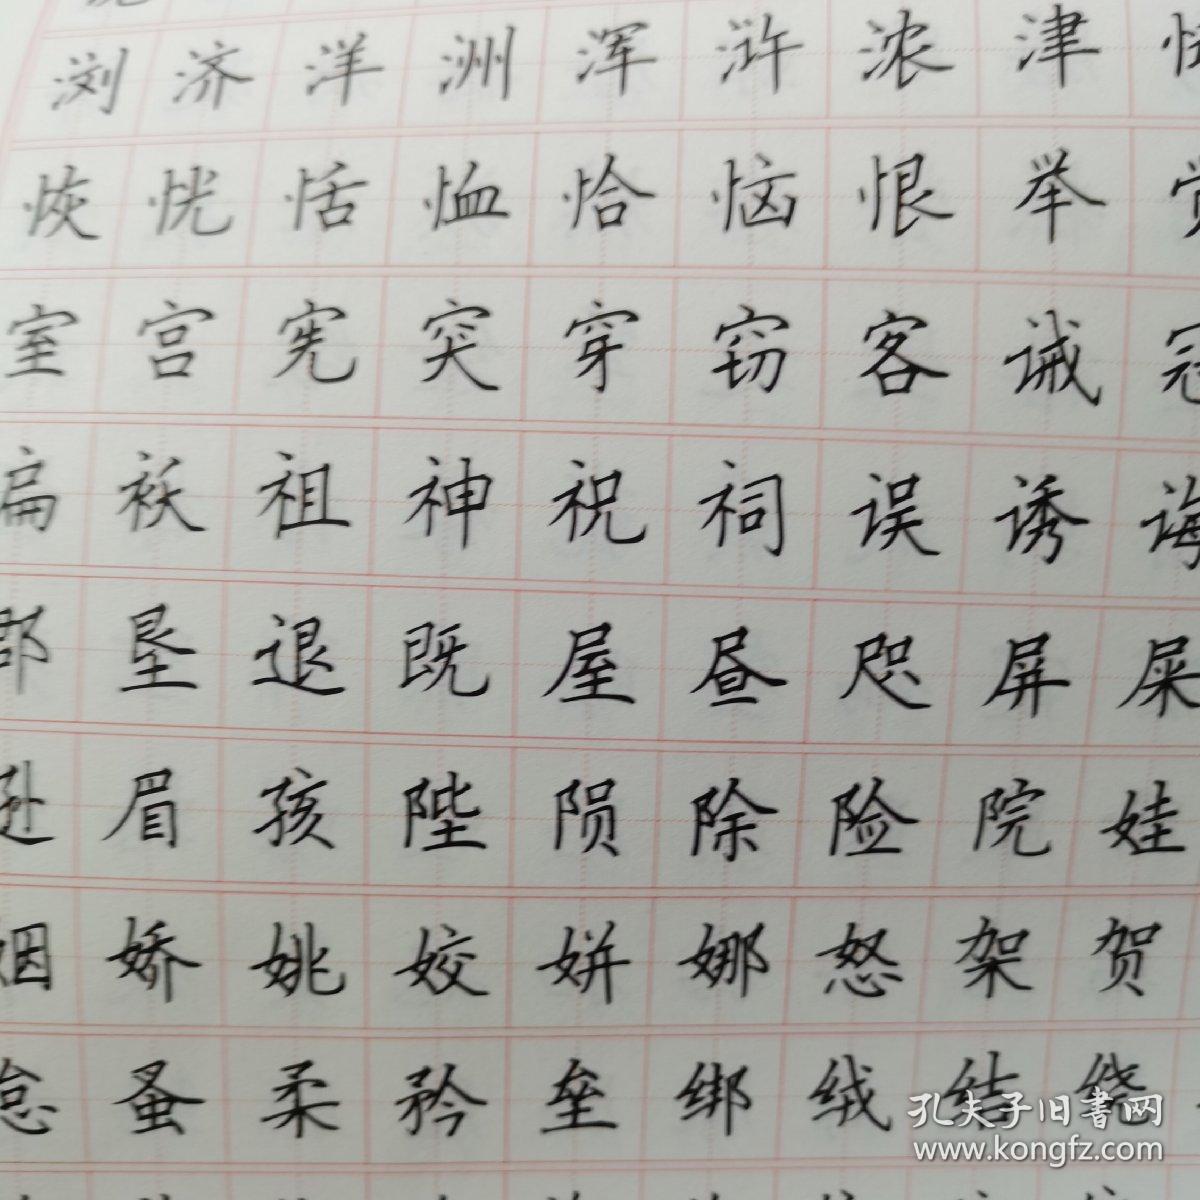 浏济洋洲浑浒浓津
恢恍恬恤恰恼恨举觉
室宫宪突穿窃客诫冠
扁袄祖神祝祠误诱诲
郡垦退既屋昼咫屏屎
逊眉孩陛陨除险院娃
姻娇姚姣姘娜怒架贺
怠蚤柔矜垒绑绒结绕
孔夫子旧书网
www.kongfz.com